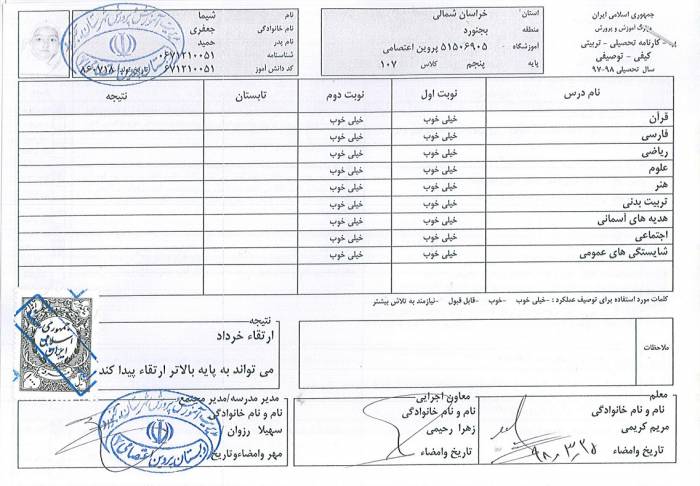 جمهوری اسلامی ایران
وزارت آموزش و پرورش
کارنامه تحصیلی - تربیتی
کیفی - توصیفی
سال تحصیلی ۹۸-۹۷
استان: خراسان شمالی
منطقه بجنورد
آموزشگاه ۵۱۵۰۶۹۰۵ پروین اعتصامی
پایه پنجم کلاس ۱۰۷
نام شیما
نام خانوادگی جعفری
نام پدر حمید
شناسنامه ۰۶۷۱۲۱۰۰۵۱
کد دانش آموز ۶۷۱۲۱۰۰۵۱
نام درس نوبت اول نوبت دوم تابستان نتیجه
قرآن خیلی خوب خیلی خوب
فارسی خیلی خوب خیلی خوب
ریاضی خیلی خوب خیلی خوب
علوم خیلی خوب خیلی خوب
هنر خیلی خوب خیلی خوب
تربیت بدنی خیلی خوب خیلی خوب
هدیه های آسمانی خیلی خوب خیلی خوب
اجتماعی خیلی خوب خیلی خوب
شایستگی های عمومی خیلی خوب خیلی خوب
کلمات مورد استفاده برای توصیف عملکرد : -خیلی خوب -خوب -قابل قبول -نیازمند به تلاش بیشتر
ملاحظات
نتیجه
ارتقاء خرداد
می تواند به پایه بالاتر ارتقاء پیدا کند
جمهوری
اسلامی
ایران
معلم
نام و نام خانوادگی
مریم کریمی
تاریخ وامضاء
۹۸,۳,۲۵
معاون اجرایی
نام و نام خانوادگی
زهرا رحیمی
تاریخ وامضاء
مدیر مدرسه/مدیر مجتمع
نام و نام خانوادگی
سهیلا رزوان
مهر وامضاءوتاریخ
دبستان پروین اعتصامی